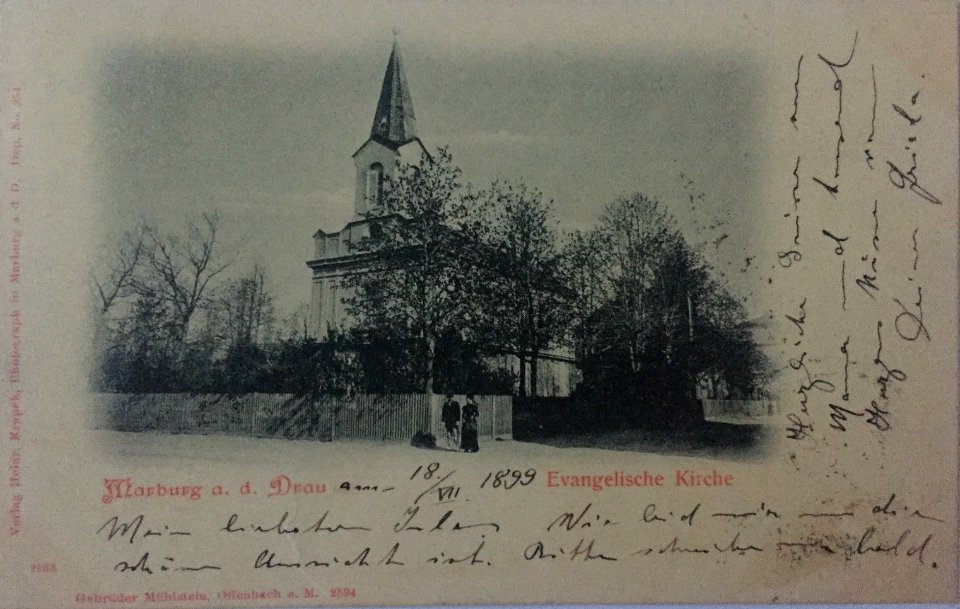 Marburg a. d. Drau am 18/VII. 1899 Evangelische Kirche
Mein liebster Wie leid mir um dein
schöne Ansicht ist. Bitte schreibe mir bald.
Herzliche von
Mama und tausend
von
Deiner Grisla.
Verlag Heinr. Krapek, Photograph in Marburg a. d. D. Dep. No. 254
2163
Gebrüder Mühlstein, Offenbach a. M. 2594